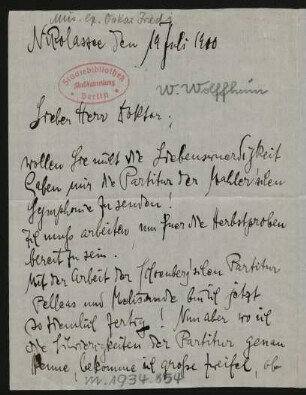 Mus. ep. Oskar Fried 4
Nikolassee den 19 Juli 1900
Staatsbibliothek
Musikabteilung
Berlin
W. Wolffheim
Lieber Herr Doktor,
wollen Sie nicht die Liebenswürdigkeit
haben mir die Partitur der Mahler'schen
Symphonie zu senden!
Ich muss arbeiten um für die Herbstproben
bereit zu sein.
Mit der Arbeit der Schönberg'schen Partitur
Pelleas und Melisande bin ich jetzt
so ziemlich fertig! Nun aber wo ich
die Schwierigkeiten der Partitur genau
kenne, bekomme ich große Zweifel, ob
m. 1934.854